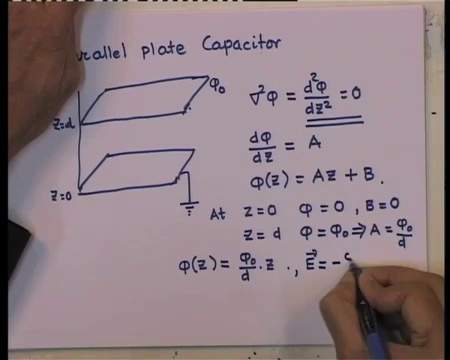 arallel plate Capacitor
φ₀
∇²φ = d²φ/dz² = 0
z=d
dφ/dz = A
φ(z) = Az + B.
z=0
At z=0 φ=0, B=0
z=d φ=φ₀ ⇒ A = φ₀/d
φ(z) = φ₀/d · z ., E⃗ = −